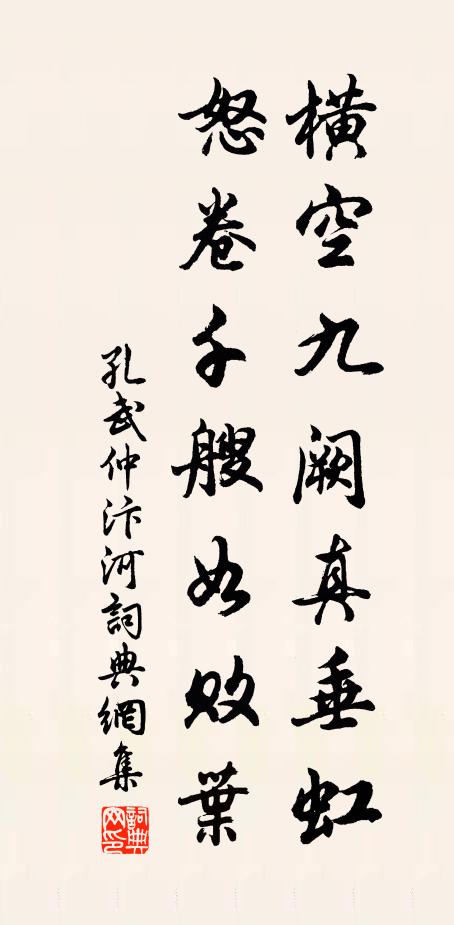 橫空九阙真垂虹
怒卷千艘如敗葉
孔武仲汴河詞典網集
詞典网印